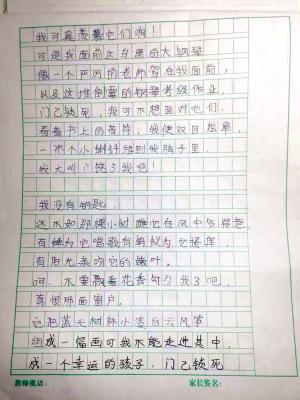 我可真羡慕它们啊！
可是我面前这乌黑的大钢琴
像一个严厉的老师驾在我面前，
以及这堆倒霉的钢琴考级作业，
门已锁死，我可不想面对它们，
看着书上的音符，我便双目炫晕，
一不小蝌蚪游到我脑子里，
我大叫：饶了我吧！
我没有钥匙，
还不如那棵小树瞧它在风中多得意，
有蝉为它唱歌有蚂蚁为它挠痒，
有阳光亲吻它的嫩叶。
呵，不要飘着花香勾引我了吧，
真恨那面窗户，
它把蓝天树林小溪白云风筝
组成一幅画可我不能走进其中，
成一个幸运的孩子，门已锁死
教师批语：
家长签名：